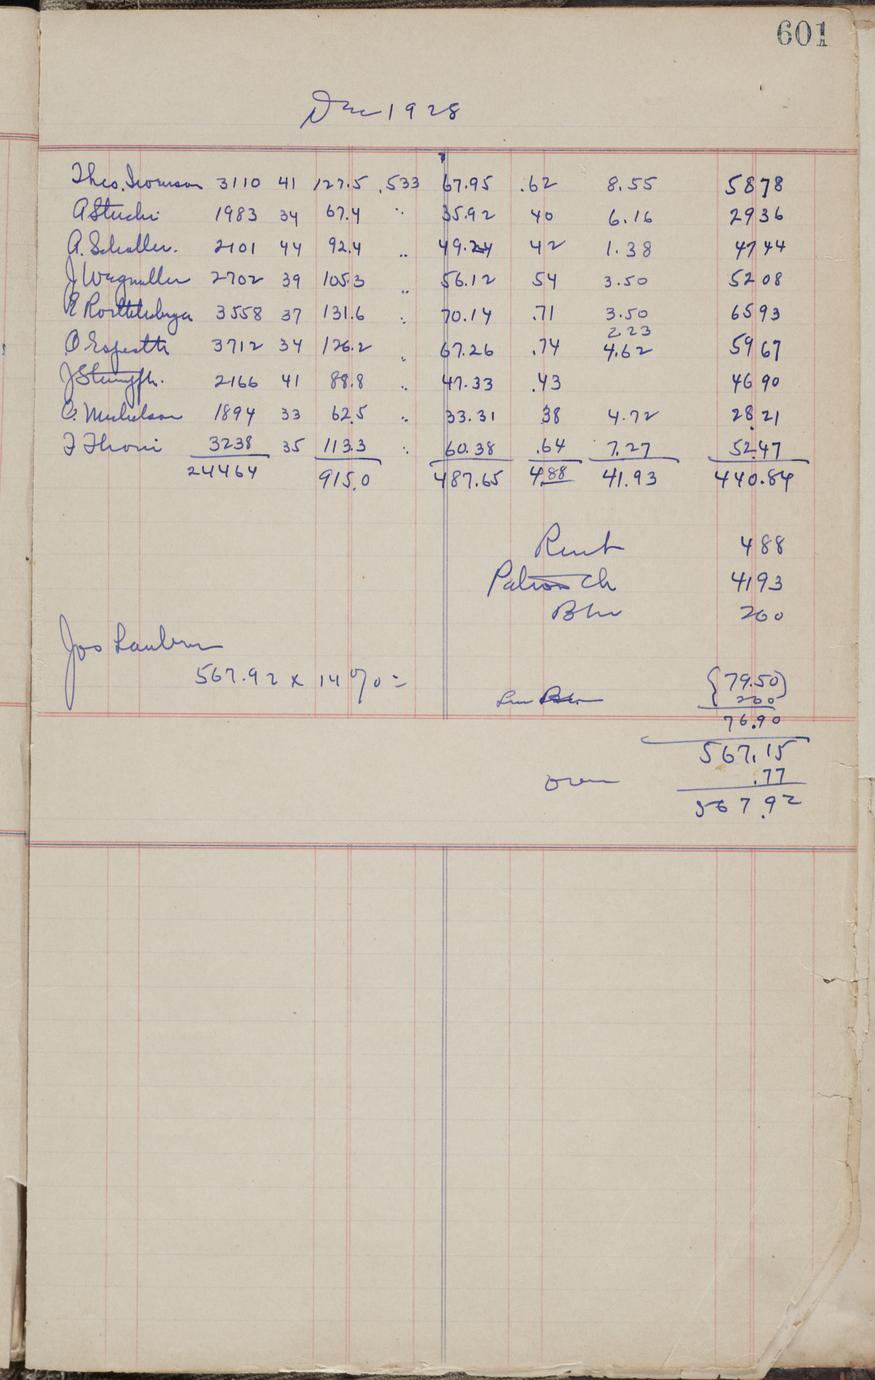 601
Dec 1928
Theo. Ironson 3110 41 127.5 .533 67.95 .62 8.55 5878
A Stuchi 1983 34 67.4 " 35.92 40 6.16 2936
A. Schaller. 2101 44 92.4 " 49.24 42 1.38 4744
J Wagmuller 2702 39 105.3 " 56.12 54 3.50 5208
3558 37 131.6 " 70.14 .71 3.50 6593
2 23
O. 3712 34 126.2 " 67.26 .74 4.62 5967
J Stumpfh. 2166 41 88.8 " 47.33 .43 4690
C. Michelson 1894 33 62.5 " 33.31 38 4.72 2821
F Thoni 3238 35 113.3 " 60.38 .64 7.27 52.47
24464 915.0 487.65 4.88 41.93 440.84
Rent 488
Patron Ch 4193
260
Jos
567.92 x 14% =
(79.50)
260
76.90
567.15
over .77
567.92